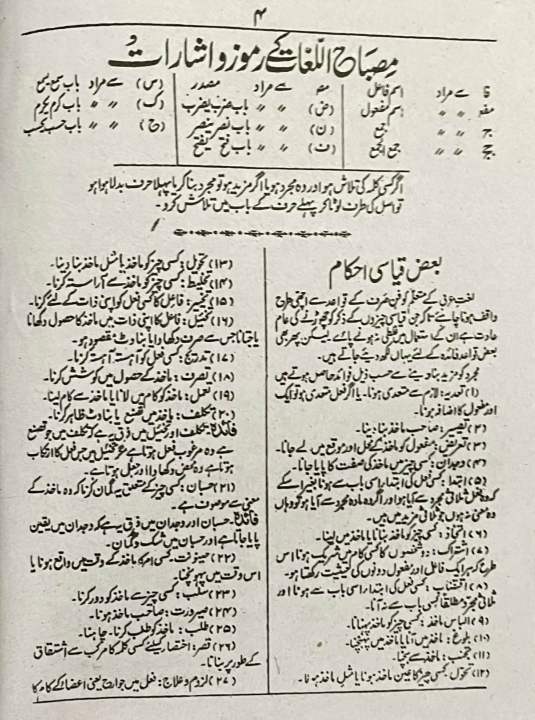 ۴
مصباح اللغات کے رموز و اشارات
فا سے مراد اسم فاعل
مفع 〃 〃 اسم مفعول
ج 〃 〃 جمع
جج 〃 〃 جمع الجمع
مص سے مراد مصدر
(ض) 〃 〃 باب ضرب یضرب
(ن) 〃 〃 باب نصر ینصر
(ف) 〃 〃 باب فتح یفتح
(س) سے مراد باب سمع یسمع
(ک) 〃 〃 باب کرم یکرم
(ح) 〃 〃 باب حسب یحسب
اگر کسی کلمہ کی تلاش ہو اور وہ مجرد ہو یا اگر مزید ہو تو مجرد بنا کر یا پہلا حرف بدلا ہوا ہو
تو اصل کی طرف لوٹا کر پہلے حرف کے باب میں تلاش کرو۔
بعض قیاسی احکام
لغت عربی کے متعلم کو فن صرف کے قواعد سے اچھی طرح
واقف ہونا چاہئے تاکہ جن قیاسی چیزوں کے ذکر کو چھوڑنے کی عام
عادت ہے ان کے استعمال میں غلطی نہ ہونے پائے لیکن پھر بھی
بعض قواعد فائدہ کے لئے یہاں لکھ دیئے جاتے ہیں۔
مجرد کو مزید بنا دینے سے حسب ذیل فوائد حاصل ہوتے ہیں
(۱) تعدیہ: لازم سے متعدی ہونا۔ یا اگر فعل متعدی ہو تو ایک
اور مفعول کا اضافہ ہونا۔
(۲) تصییر: صاحب ماخذ بنا دینا۔
(۳) تعریض: مفعول کو ماخذ کے محل اور موقع میں لے جانا۔
(۴) وجدان: کسی چیز میں ماخذ کی صفت کا پایا جانا۔
(۵) ابتدا: کسی فعل کی ابتدا اسی باب سے ہونا بغیر اس کے
کہ وہ فعل ثلاثی مجرد سے آیا ہو اور اگر وہ مادہ مجرد سے آیا ہو تو وہاں
وہ معنی نہ ہوں جو ثلاثی مزید میں ہیں۔
(۶) اتخاذ: کسی چیز کو ماخذ بنانا یا ماخذ میں لینا۔
(۷) اشتراک: دو شخصوں کا کسی کام میں شریک ہونا اس
طرح کہ ہر ایک فاعل اور مفعول دونوں کی حیثیت رکھتا ہو۔
(۸) اقتضاب: کسی فعل کی ابتدا اسی باب سے ہونا اور
ثلاثی مجرد مطلقاً کسی باب سے نہ آنا۔
(۹) الباس ماخذ: کسی چیز کو ماخذ پہنانا۔
(۱۰) بلوغ: ماخذ میں آنا یا ماخذ میں پہنچنا۔
(۱۱) تجنب: ماخذ سے بچنا۔
(۱۲) تحول: کسی چیز کا عین ماخذ ہونا یا مثل ماخذ ہونا۔
(۱۳) تحویل: کسی چیز کو ماخذ یا مثل ماخذ بنا دینا۔
(۱۴) تخلیط: کسی چیز کو ماخذ سے آراستہ کرنا۔
(۱۵) تخییر: فاعل کا کسی فعل کو اپنی ذات کے لئے کرنا۔
(۱۶) تخییل: فاعل کا اپنی ذات میں ماخذ کا حصول دکھانا
یا جتانا جس سے صرف دکھاوا یا بناوٹ مقصود ہو۔
(۱۷) تدریج: کسی فعل کو آہستہ آہستہ کرنا۔
(۱۸) تصرف: ماخذ کے حصول میں کوشش کرنا۔
(۱۹) تعمل: ماخذ کو کام میں لانا یا ماخذ سے کام لینا۔
(۲۰) تکلف: ماخذ میں تصنع یا بناوٹ ظاہر کرنا۔
فائدہ۔ تکلف اور تخییل میں فرق یہ ہے کہ تکلف میں جو تصنع
ہے وہ مرغوب فعل ہوتا ہے تخییل میں جس فعل کا ارتکاب
ہوتا ہے وہ محض دکھاوا اور جعل ہوتا ہے۔
(۲۱) حسبان: کسی چیز کے متعلق یہ گمان کرنا کہ وہ ماخذ کے
معنی سے موصوف ہے۔
فائدہ۔ حسبان اور وجدان میں فرق یہ ہے کہ وجدان میں یقین
پایا جاتا ہے اور حسبان میں شک و گمان۔
(۲۲) حینونت: کسی امر کا ماخذ کے وقت میں واقع ہونا یا
اس وقت میں پہونچنا۔
(۲۳) سلب: کسی چیز سے ماخذ کو دور کرنا۔
(۲۴) صیرورت: صاحب ماخذ ہونا۔
(۲۵) طلب: ماخذ کو طلب کرنا۔ چاہنا۔
(۲۶) قصر: اختصار کیلئے کسی کلمہ کا مرکب سے اشتقاق
کے طور پر بنانا۔
(۲۷) لزوم و علاج: فعل میں جوارح یعنی اعضا کے کام کا